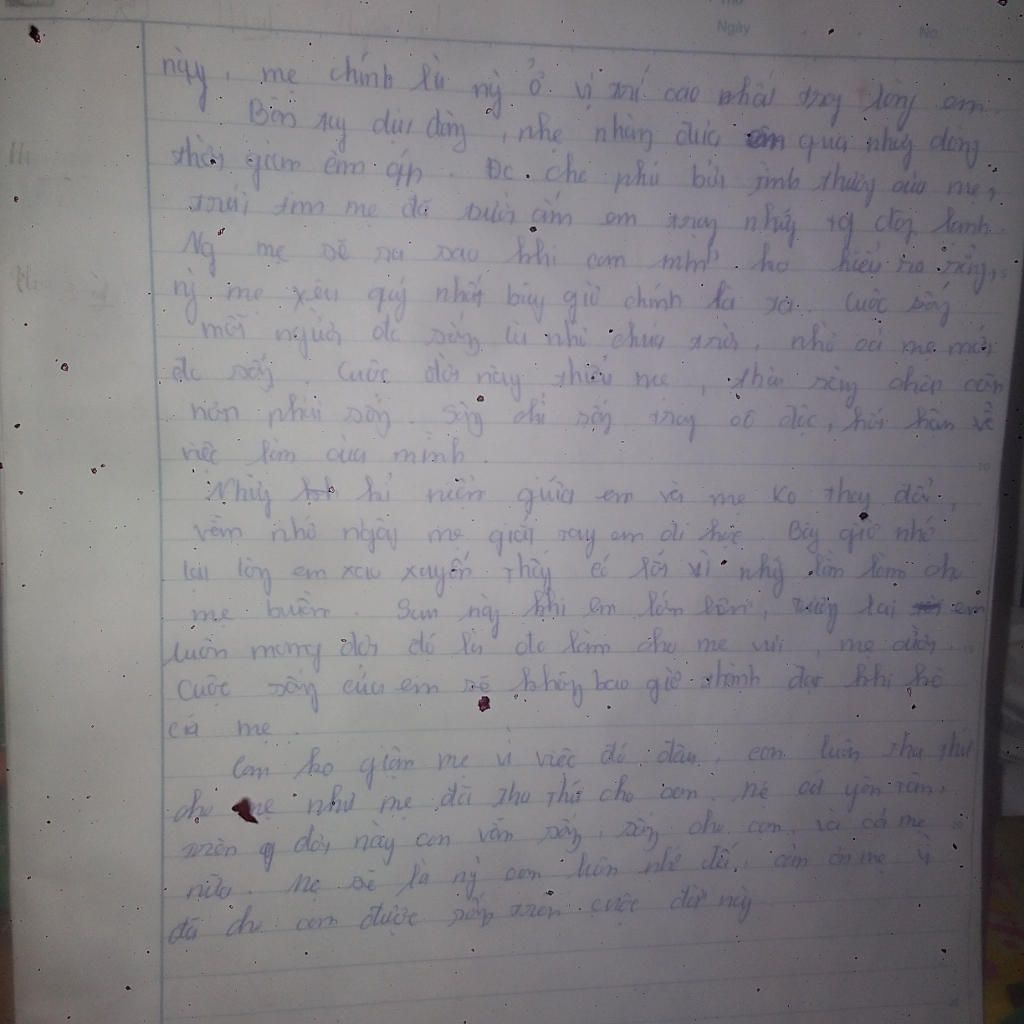 Ngày No.
này, mẹ chính là ng ở vị trí cao nhất trog lòng em.
Bàn tay dịu dàng, nhẹ nhàng đưa em qua nhữg dòng
thời gian êm ấp. Đc che phủ bởi tình thươg của mẹ,
trái tim mẹ đã sưởi ấm em trog nhữg tg đôg lạnh.
Ng mẹ sẽ ra sao khi con mình ko hiểu ra rằng,
ng mẹ yêu quý nhất bây giờ chính là xa. Cuộc sốg
mỗi người đc sốg là nhờ chúa trời, nhờ có mẹ mới
đc sốg. Cuộc đời này thiếu mẹ, thà rằng chếp còn
hơn phải sốg. Sốg chỉ sốg trog cô độc, hối hận về
việc làm của mình.
Nhữg kỉ niệm giữa em và mẹ ko thay đổi,
vẫn nhớ ngày mẹ giắt tay em đi học. Bây giờ nhớ
lại lòng em xao xuyến thấy có lỗi vì nhữg lần làm cho
mẹ buồn. Sau này khi em lớn lên, tươg lai em
luôn mong đợi đó là đc làm cho mẹ vui, mẹ cười.
Cuộc sốg của em sẽ khôg bao giờ thành đạt khi ko
có mẹ.
Con ko giận mẹ vì việc đó đâu, con luôn tha thứ
cho mẹ như mẹ đã tha thứ cho con. Mẹ cứ yên tâm,
trên đời này con vẫn sốg, sốg cho con và cả mẹ
nữa. Mẹ sẽ là ng con luôn nhớ đến, cảm ơn mẹ vì
đã cho con được sốg trên cuộc đời này